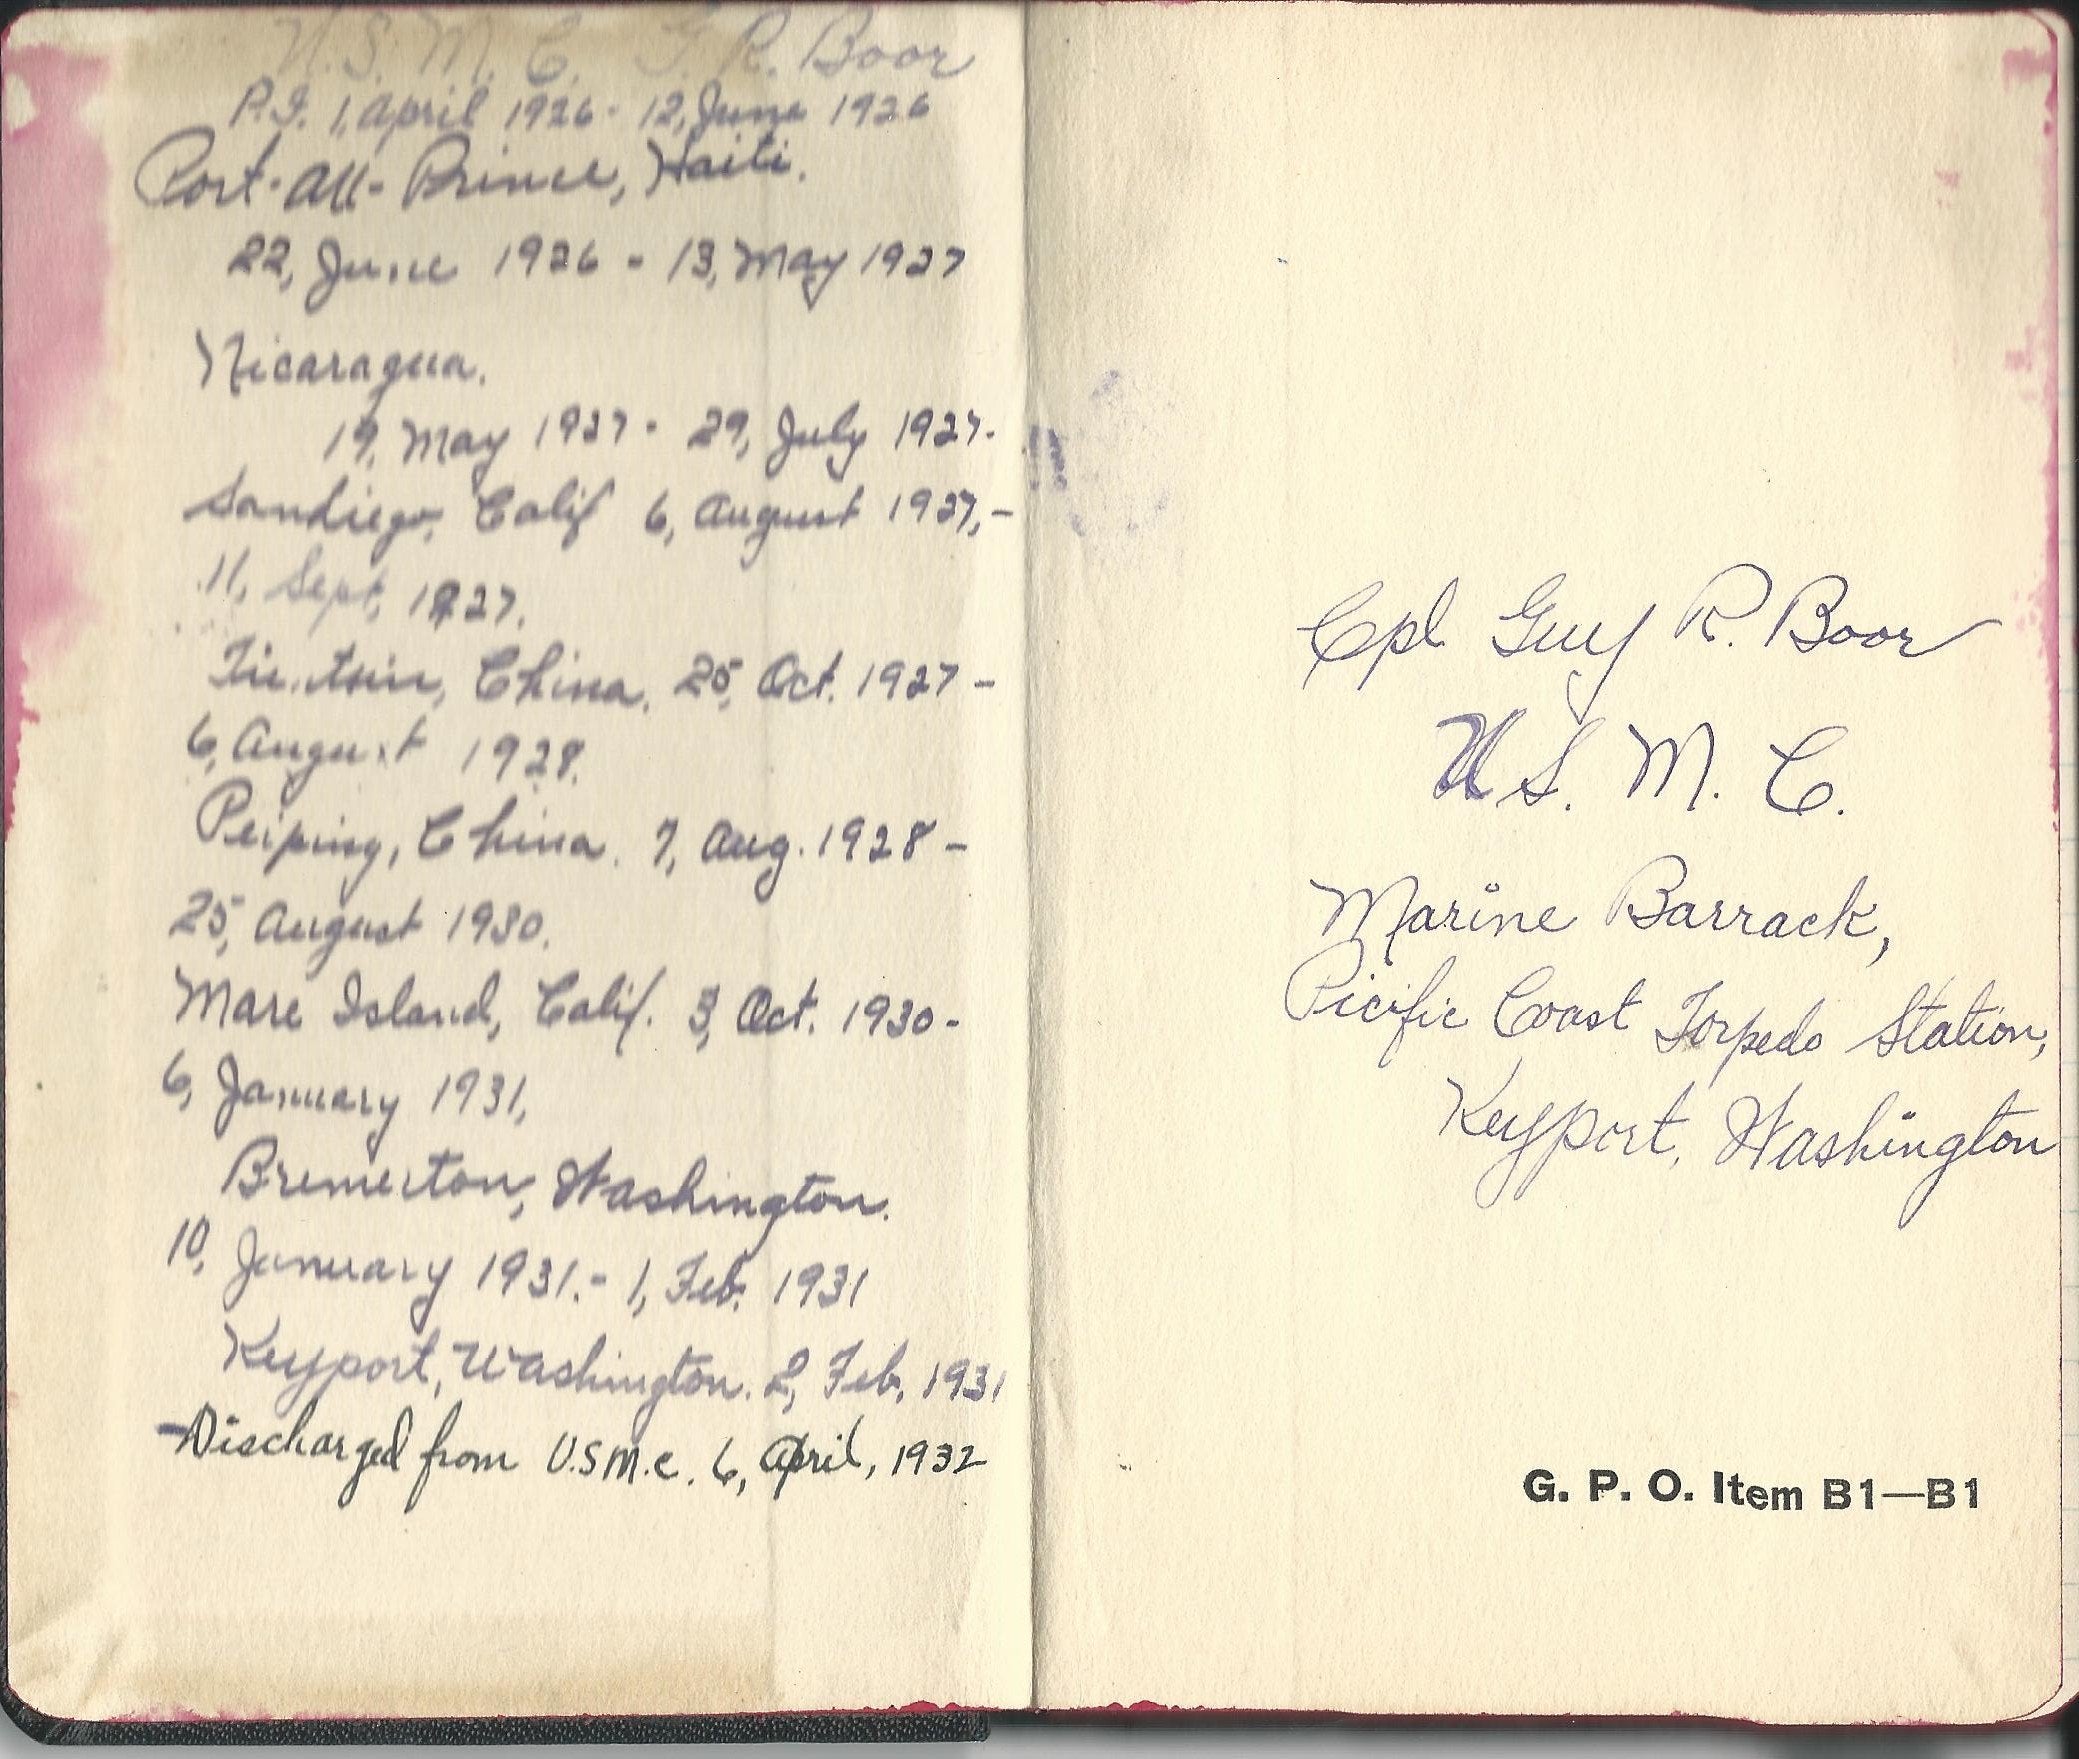 U.S.M.C. G.R. Boor
P.I. 1, April 1926 - 12, June 1926
Port-Au-Prince, Haiti.
22, June 1926 - 13, May 1927
Nicaragua.
19, May 1927 - 29, July 1927.
Sandiego, Calif 6, August 1927, -
11, Sept, 1927.
Tientsin, China. 25, Oct. 1927 -
6, August 1928.
Peiping, China. 7, Aug. 1928 -
25, August 1930.
Mare Island, Calif. 3, Oct. 1930 -
6, January 1931,
Bremerton, Washington.
10, January 1931. - 1, Feb. 1931
Keyport, Washington. 2, Feb, 1931
- Discharged from U.S.M.C. 6, April, 1932
Cpl Guy R. Boor
U.S. M. C.
Marine Barrack,
Picific Coast Torpedo Station,
Keyport, Washington
G. P. O. Item B1—B1